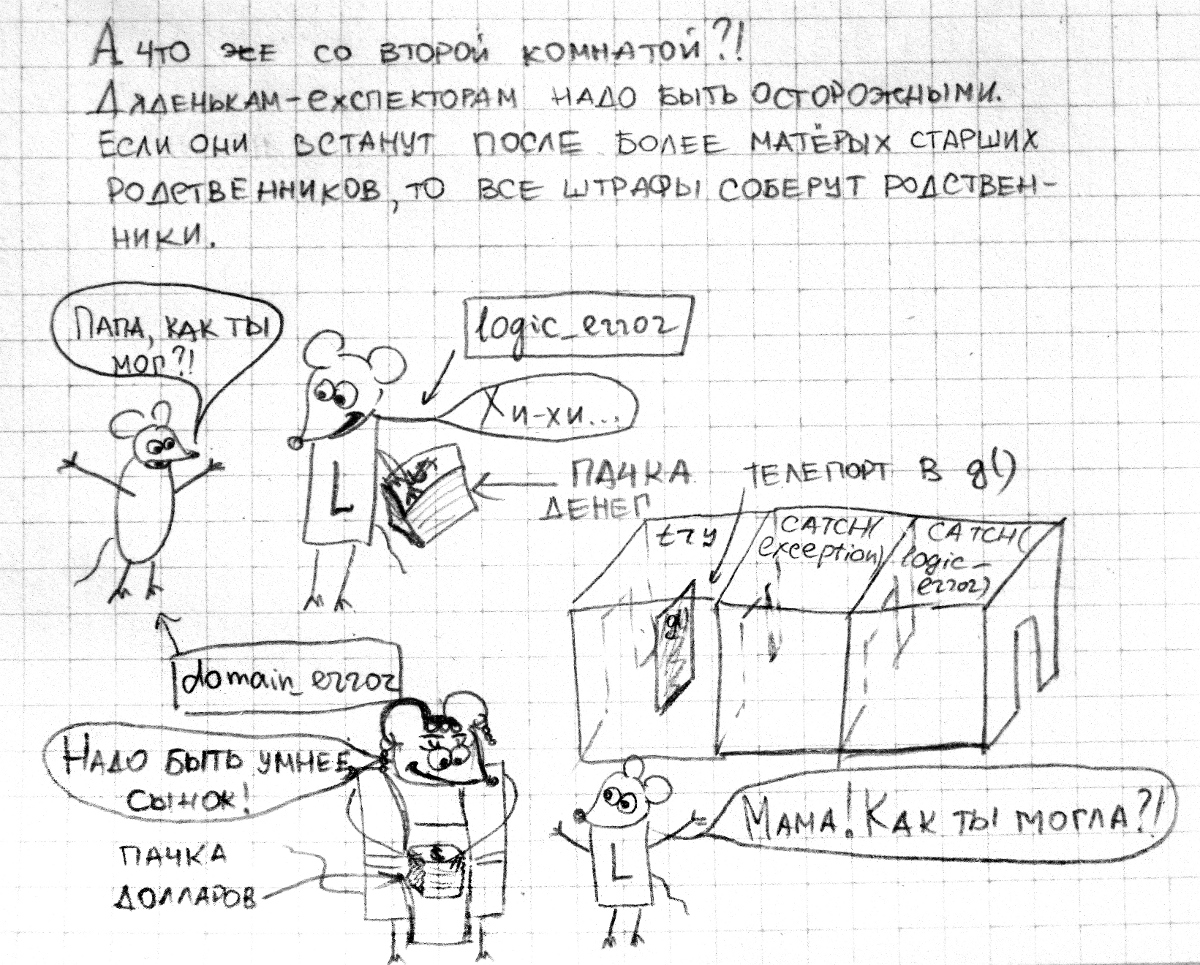 А ЧТО ЖЕ СО ВТОРОЙ КОМНАТОЙ?!
ДЯДЕНЬКАМ-ЕХСПЕКТОРАМ НАДО БЫТЬ ОСТОРОЖНЫМИ.
ЕСЛИ ОНИ ВСТАНУТ ПОСЛЕ БОЛЕЕ МАТЁРЫХ СТАРШИХ
РОДСТВЕННИКОВ, ТО ВСЕ ШТРАФЫ СОБЕРУТ РОДСТВЕН-
НИКИ.
ПАПА, КАК ТЫ
МОГ?!
logic_error
ХИ-ХИ...
L
ПАЧКА
ДЕНЕГ
ТЕЛЕПОРТ В g()
try
CATCH(
exception)
CATCH(
logic_
error)
g()
domain_error
НАДО БЫТЬ УМНЕЕ,
СЫНОК!
ПАЧКА
ДОЛЛАРОВ
$
МАМА! КАК ТЫ МОГЛА?!
L